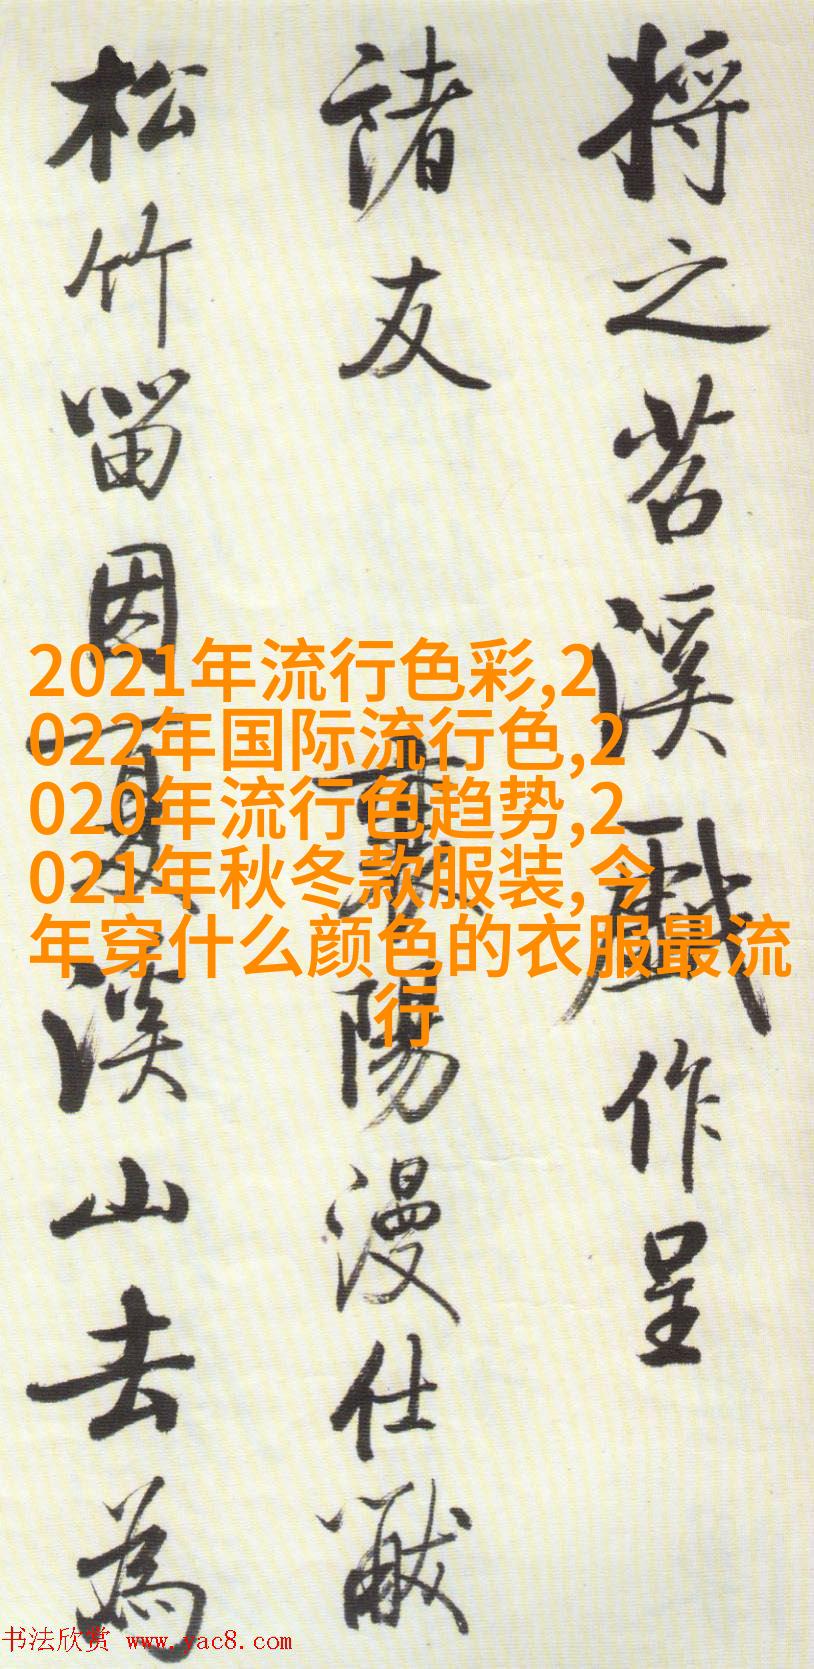 将之苕溪戲作呈
諸友
襄陽漫仕黻
松竹留因夏溪山去為
2021年流行色彩,2
022年国际流行色,2
020年流行色趋势,2
021年秋冬款服装,今
年穿什么颜色的衣服最流
行
书法欣赏 www.yac8.com